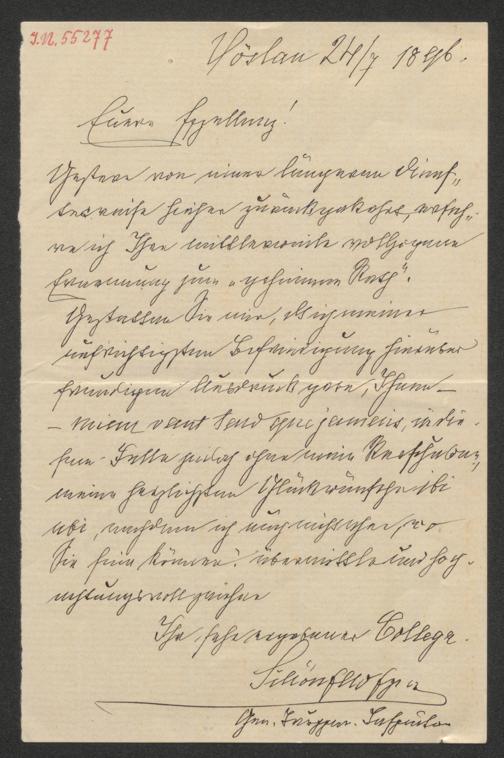 I.N. 55277
Vöslau 24/7 1896.
Euere Exzellenz!
Gestern von einer längeren Dienst„
tesreise hieher zurückgekehrt, erfah„
re ich Ihre mittlerweile vollzogene
Ernennung zum „geheimen Rath".
Gestatten Sie mir, daß ich meiner
aufrichtigsten Befriedigung hierüber
freudigen Ausdruck gebe, Ihnen –
– mieux vaut tard que jamais, in die-
sem Falle jedoch ohne mein Verschulden,
meine herzlichsten Glückwünsche ibi
ubi, nachdem ich auch nicht weiß, wo
Sie sein können. übermittle und hoch-
achtungsvoll zeichne
Ihr sehr ergebener College.
Schönfeld
Gen. Truppen. Inspector